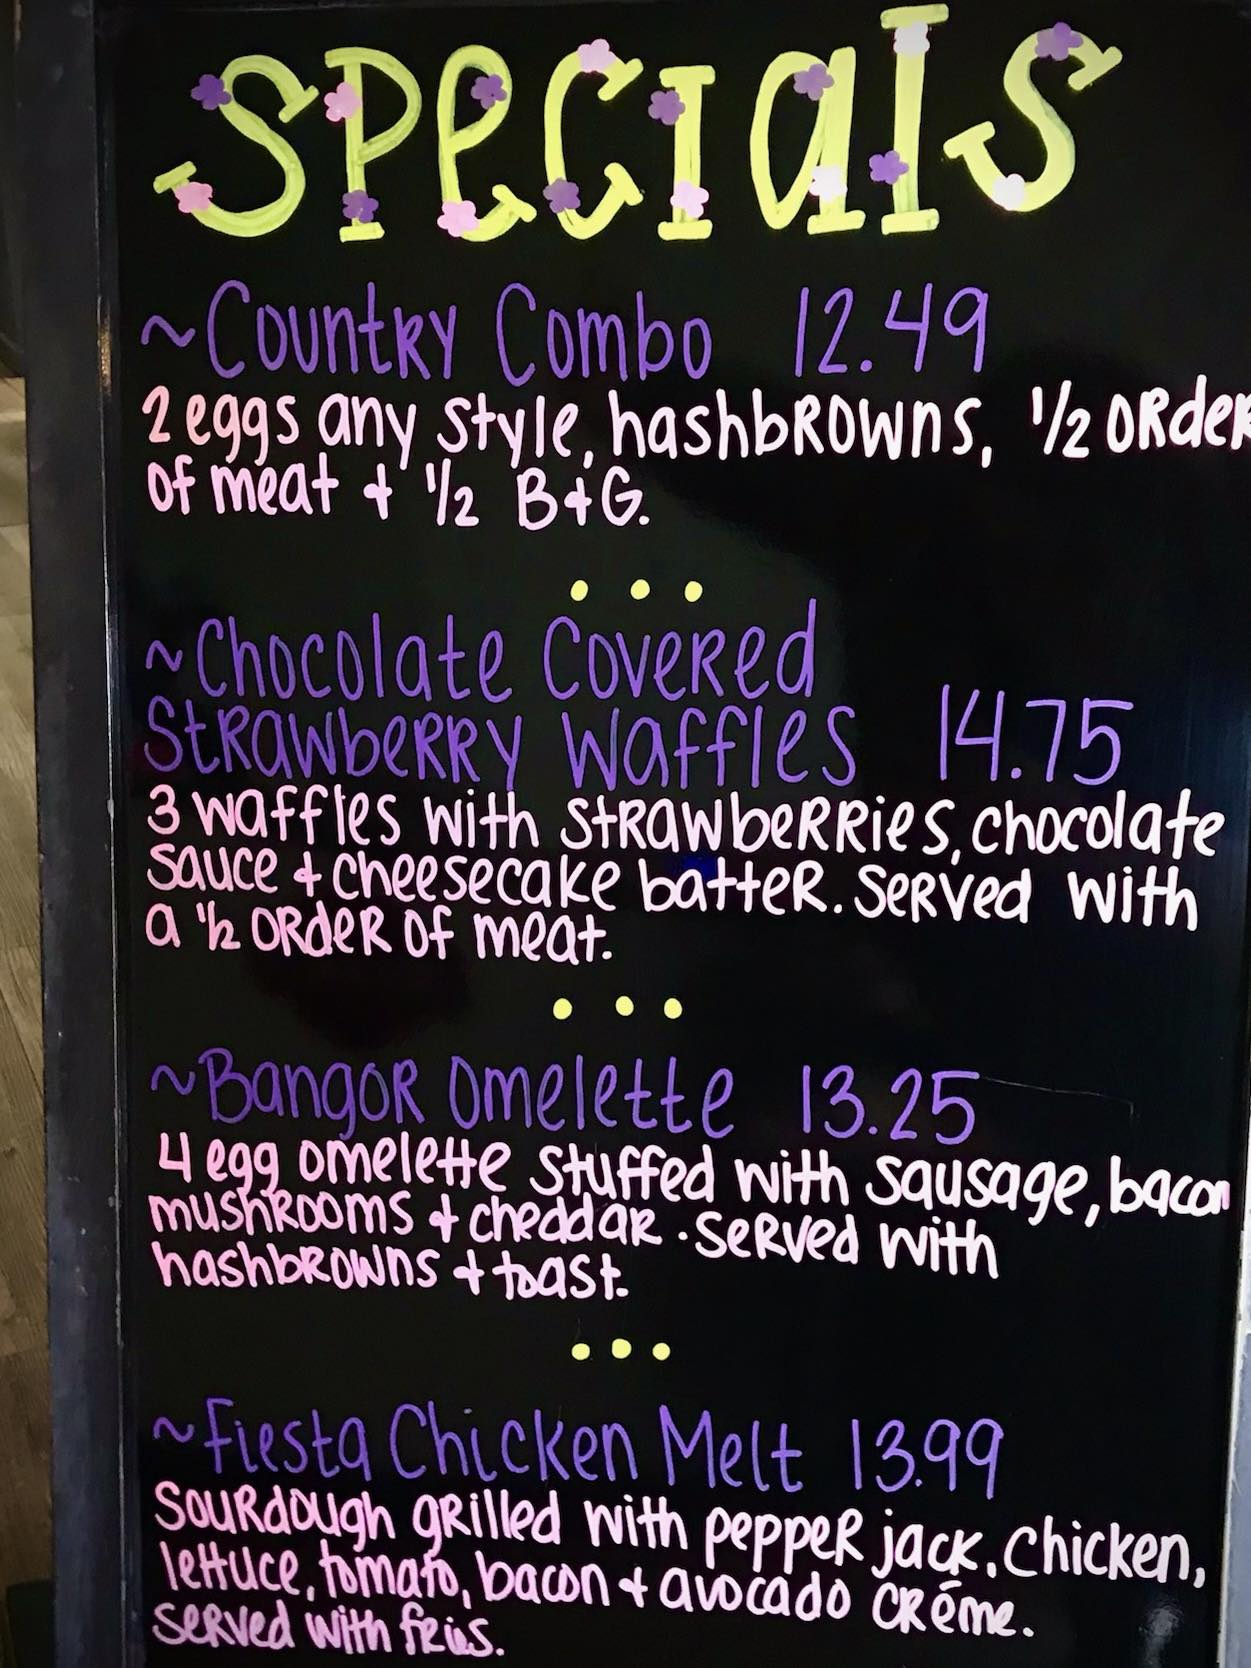 Specials
~Country Combo 12.49
2 eggs any style, hashbrowns, 1/2 order
of meat + 1/2 B+G.
~Chocolate Covered
Strawberry Waffles 14.75
3 waffles with strawberries, chocolate
sauce + cheesecake batter. Served with
a 1/2 order of meat.
~Bangor Omelette 13.25
4 egg omelette stuffed with sausage, bacon
mushrooms + cheddar. Served with
hashbrowns + toast.
~Fiesta Chicken Melt 13.99
Sourdough grilled with pepper jack, chicken,
lettuce, tomato, bacon + avocado créme.
Served with fries.